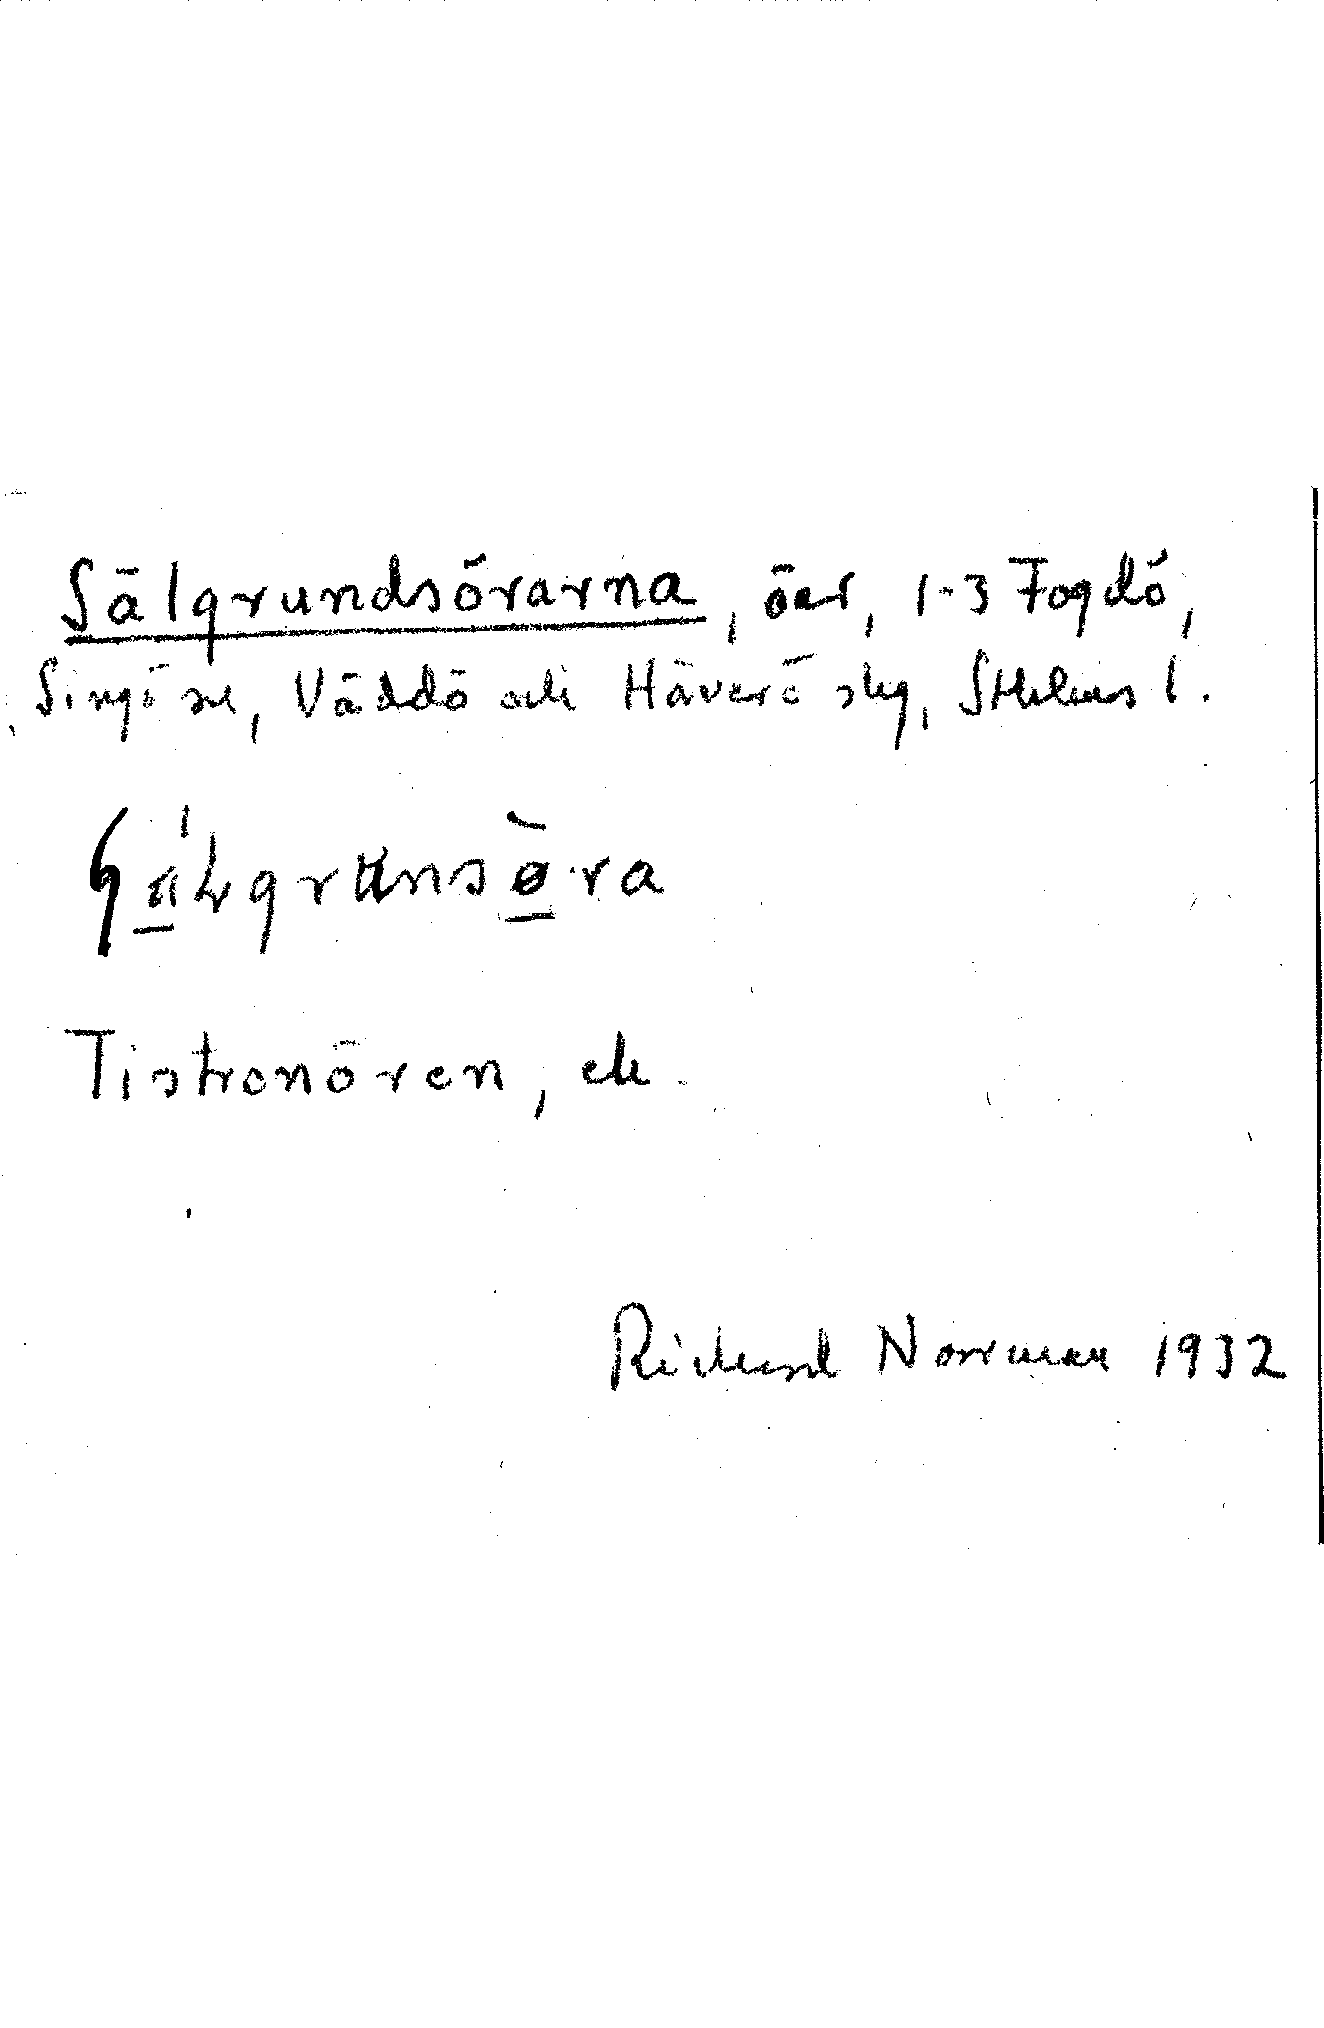 Sälgrundsörarna, öar, 1-3 Fogdö,
Singö sn, Väddö och Häverö skg, Sthlms l.
Tistronören, etc
Richard Norrman 1932